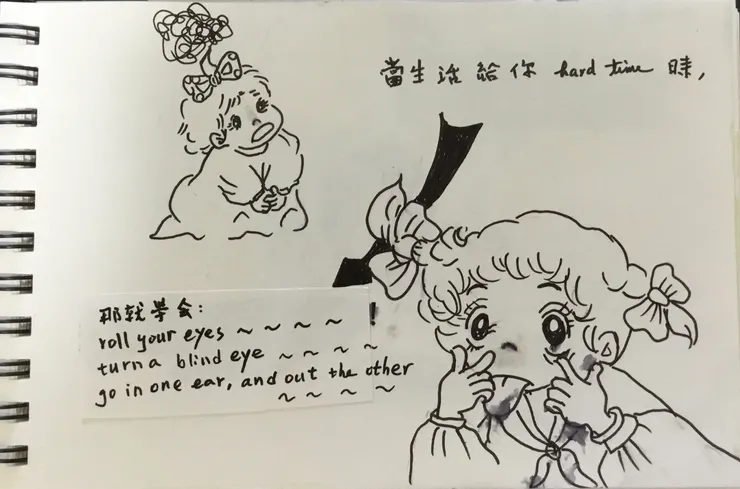 當生活給你 hard time 時,
那就學会:
roll your eyes ~ ~ ~ ~
turn a blind eye ~ ~ ~ ~
go in one ear, and out the other
~ ~ ~ ~